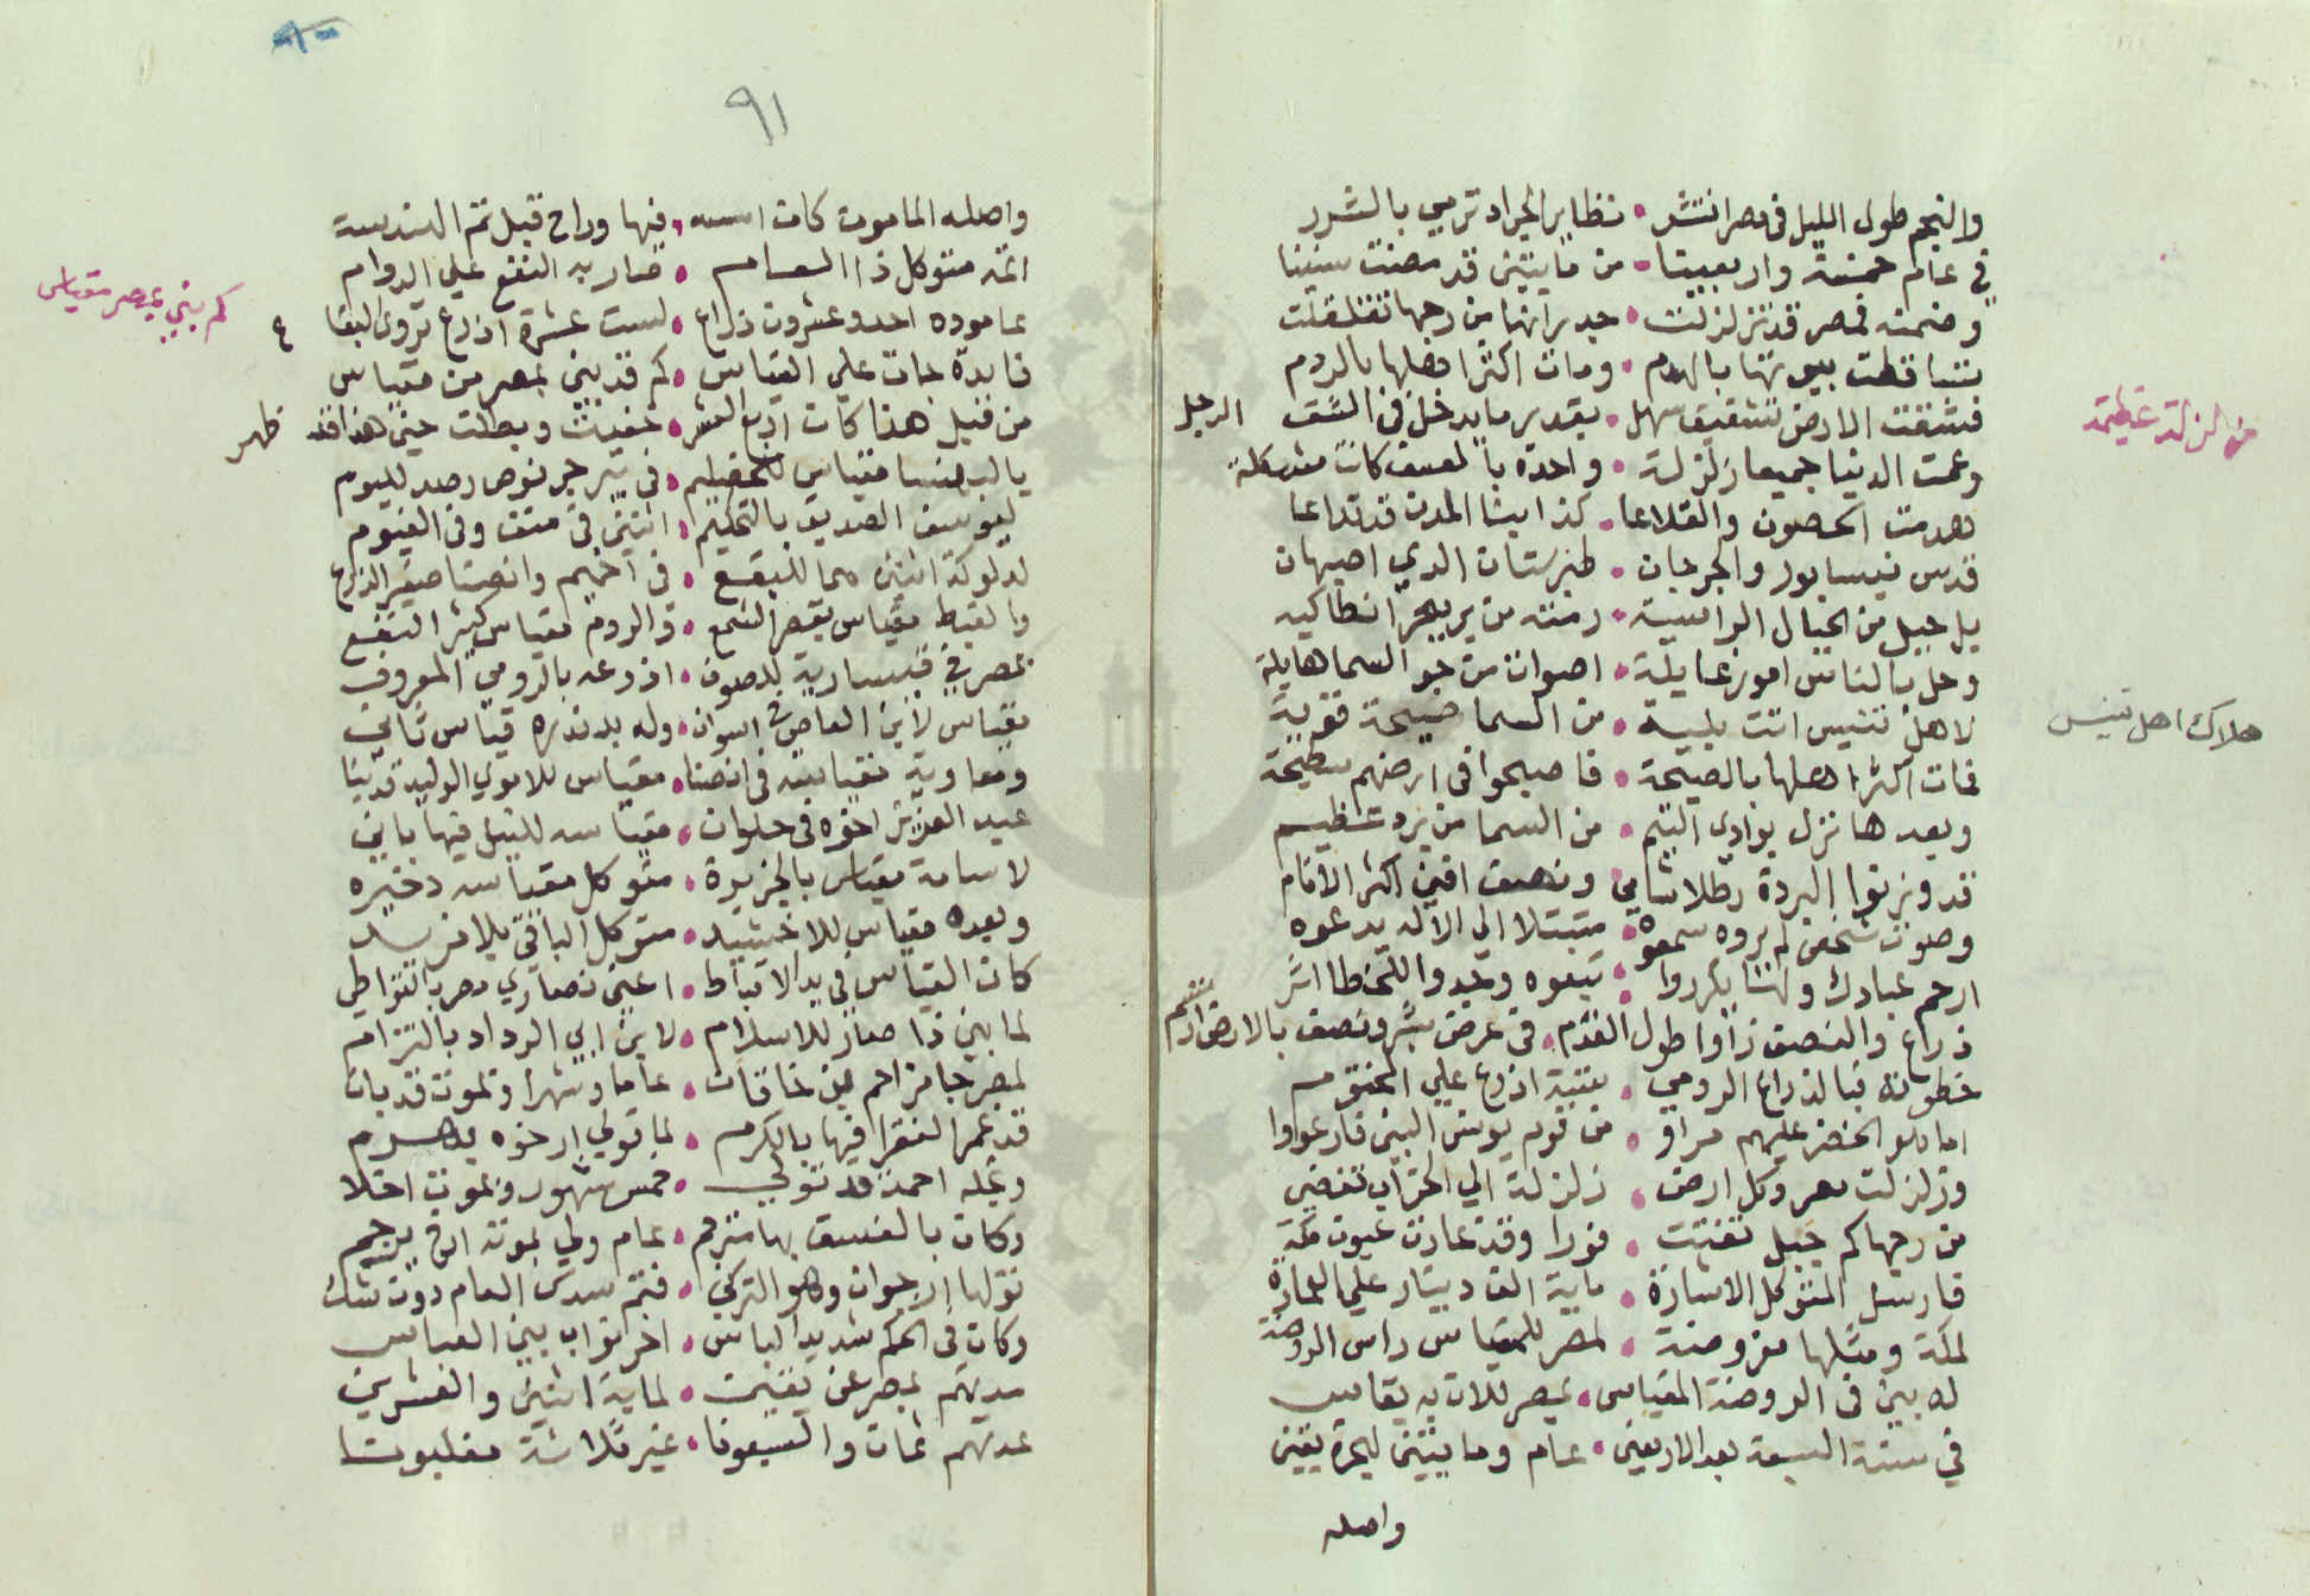 والنجم طول الليل في مصر انتشر • نظاير الجراد ترمي بالشرر
في عام خمسة واربعينا • من مايتين قد مضت سنينا
وضمنه مصر قد تزلزلت • جدرانها من رجها تقلقلت
تساقطت بيوتها بالهدم • ومات اكثر اهلها بالردم
فشققت الارض تشقيق سهل • بقدير ما يدخل في الشق الرجل
وعمت الدنيا جميعا زلزلة • واحدة بالعسف كانت مشكلة
من زلزلة عظيمة
هدمت الحصون والقلاعا • كذا بيثا المدن قد تداعا
قدس نيسابور والجرجان • طبرستان الدي اصبهان
بل جبل من الجبال الراسية • رمته من بر يبحر انطاكيه
وحل بالناس امور عايلة • اصوات من جو السما هايلة
لاهل تنيس اتت بلية • من السما صيحة قوية
هلاك اهل تنيس
فمات اكثر اهلها بالصيحة • فاصبحوا في ارضهم سطيحة
وبعدها نزل بوادي اليتم • من السما من برد عظيم
قد وزنوا البردة رطلا شامي • ونصف افني اكثر الانام
وصوت شخص لم يروه سمعوه • مبتهلا الي الاله يدعوه
ارحم عبادك ولهنا يكرروا • تبعوه وجدوا للخطا اثر
ذراع والنصف راوا طول القدم • في عرض شبر ونصف بالارض ارتسم
خطوته فبالذراع الرومي • ستة اذرع علي المختوم
اما هو الخضر عليهم مراو • من قوم يونس النبي فارعووا
وزلزلت مصر وكل ارض • زلزلة الي الخراب تفضي
من رجها كم جبل تفتت • فورا وقد غارت عيون مكة
فارسل المتوكل الاشارة • ماية الف دينار علي العمارة
لمكة ومثلها مفروضة • لمصر للمقياس راس الروضة
له بني في الروضة المقياس • بمصر للان به يقاس
في سنة السبعة بعد الاربعين • عام ومايتين ليجرة يقين
واصله
٩١
واصله المامون كان اسسه • فيها وراح قبل تم الهندسة
اتمه متوكل ذا العام • صار به النفع علي الدوام
كم بني بمصر مقياس
عاموده احد وعشرون ذراع • لست عشرة اذرع تروي البقاع
فايدة جات علي القياس • كم قد بني بمصر من مقياس
من قبل هذا كان اربع العشر • خفيت وبطلت حتي هذا قد ظهر
يا البهنسا مقياس للخضيم • في بير جرنوص رصد لليوم
ليوسف الصديق بالتحكيم • اثنين في منف وفي الفيوم
لدلوكة اثنين هما للبقع • في اخميم وانصنا صغير الذرع
والقبط مقياس بقصر الشمع • والروم مقياس كثير النفع
بمصر في قيسارية للصوف • اذرعه بالرومي المعروف
مقياس لابن العاص في اسوان • وله بدندره قياس ثاني
ومعاوية مقياسه في انصنا • مقياس للاموي الوليد قد بنا
عبد العزيز اخوه في حلوان • مقياسه للنيل فيها باني
لاسامة مقياس بالجزيرة • متوكل مقياسه دخيره
وبعده مقياس للاخشيد • متوكل الباقي بلا مزيد
كان القياس في يد الاقباط • اعني نصاري مصر بالتواطي
لما بني ذا صار للاسلام • لابن ابي الرداد بالتزام
لمصر جا مزاحم بن خاقان • عاما وشهرا وبموته قد بان
قد غمر الفقرا فيها بالكرم • لما تولي ارخوه
ونجله احمد قد تولي • خمس شهور وبموت اختلا
وكان بالفسق بها مترجم • عام ولي بموته ارخ يرجم
تولها ارجوان وهو التركي • فتم سدس العام دون شك
وكان في الحكم شديد الباس • اخر نواب بني العباس
مدتهم بمصر عن يقين • لماية اثنين والعشرين
عدتهم ثمان والسبعونا • غير ثلاثة مغلبونا